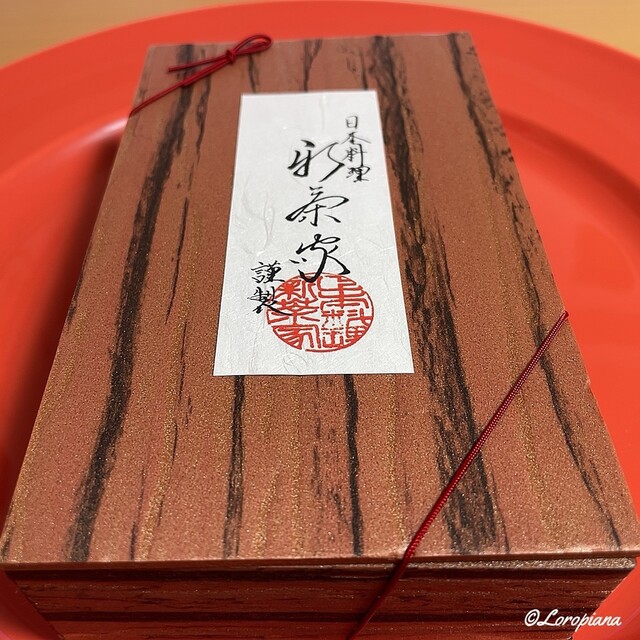 日本料理
新茶家
謹製
©Loropiana